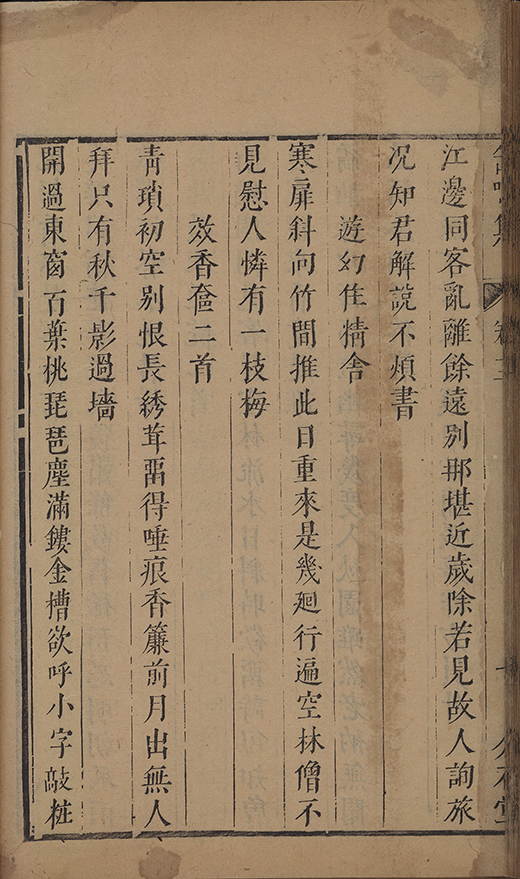 江邊同客亂離餘遠别那堪近歲除若見故人詢旅
况知君解說不煩書
遊幻住精舍
寒扉斜向竹間推此日重來是幾廻行遍空林僧不
見慰人憐有一枝梅
效香奩二首
青瑣初空别恨長綉茸畱得唾痕香簾前月出無人
拜只有秋千影過墻
開過東窗百葉桃琵琶塵滿鏤金槽欲呼小字敲粧